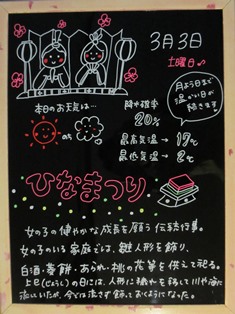 3月3日
土曜日♪
月ようびまで
温かい日が
続きます
本日のお天気は…
のち
降水確率
20%
最高気温→17℃
最低気温→2℃
ひなまつり
女の子の健やかな成長を願う伝統行事。
女の子のいる家庭では、雛人形を飾り、
白酒・菱餅・あられ・桃の花等を供えて祀る。
上巳(じょうし)の日には、人形に穢れを移して川や海に
流していたが、今では流さず飾っておくようになった。